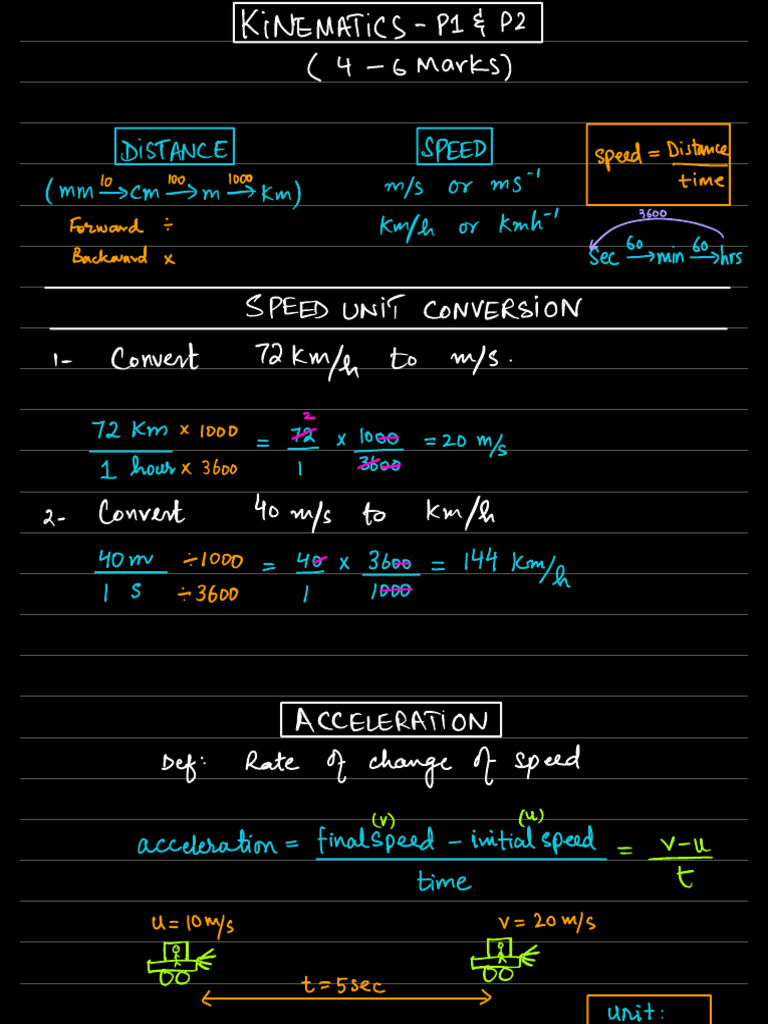 KINEMATICS - P1 & P2
( 4 – 6 Marks)
DISTANCE
(mm →10 cm →100 m →1000 Km)
Forward ÷
Backward ×
SPEED
m/s or ms⁻¹
Km/h or Kmh⁻¹
speed = Distance / time
3600
Sec →60 min →60 hrs
SPEED UNIT CONVERSION
1- Convert 72 Km/h to m/s.
72 Km × 1000 / 1 hour × 3600 = 72 2 / 1 × 1000 / 3600 = 20 m/s
2- Convert 40 m/s to Km/h
40 m ÷1000 / 1 s ÷3600 = 40 / 1 × 3600 / 1000 = 144 Km/h
ACCELERATION
Def: Rate of change of speed
(v) (u)
acceleration = final speed – initial speed / time = v-u / t
u = 10 m/s
v = 20 m/s
t = 5 sec
unit: